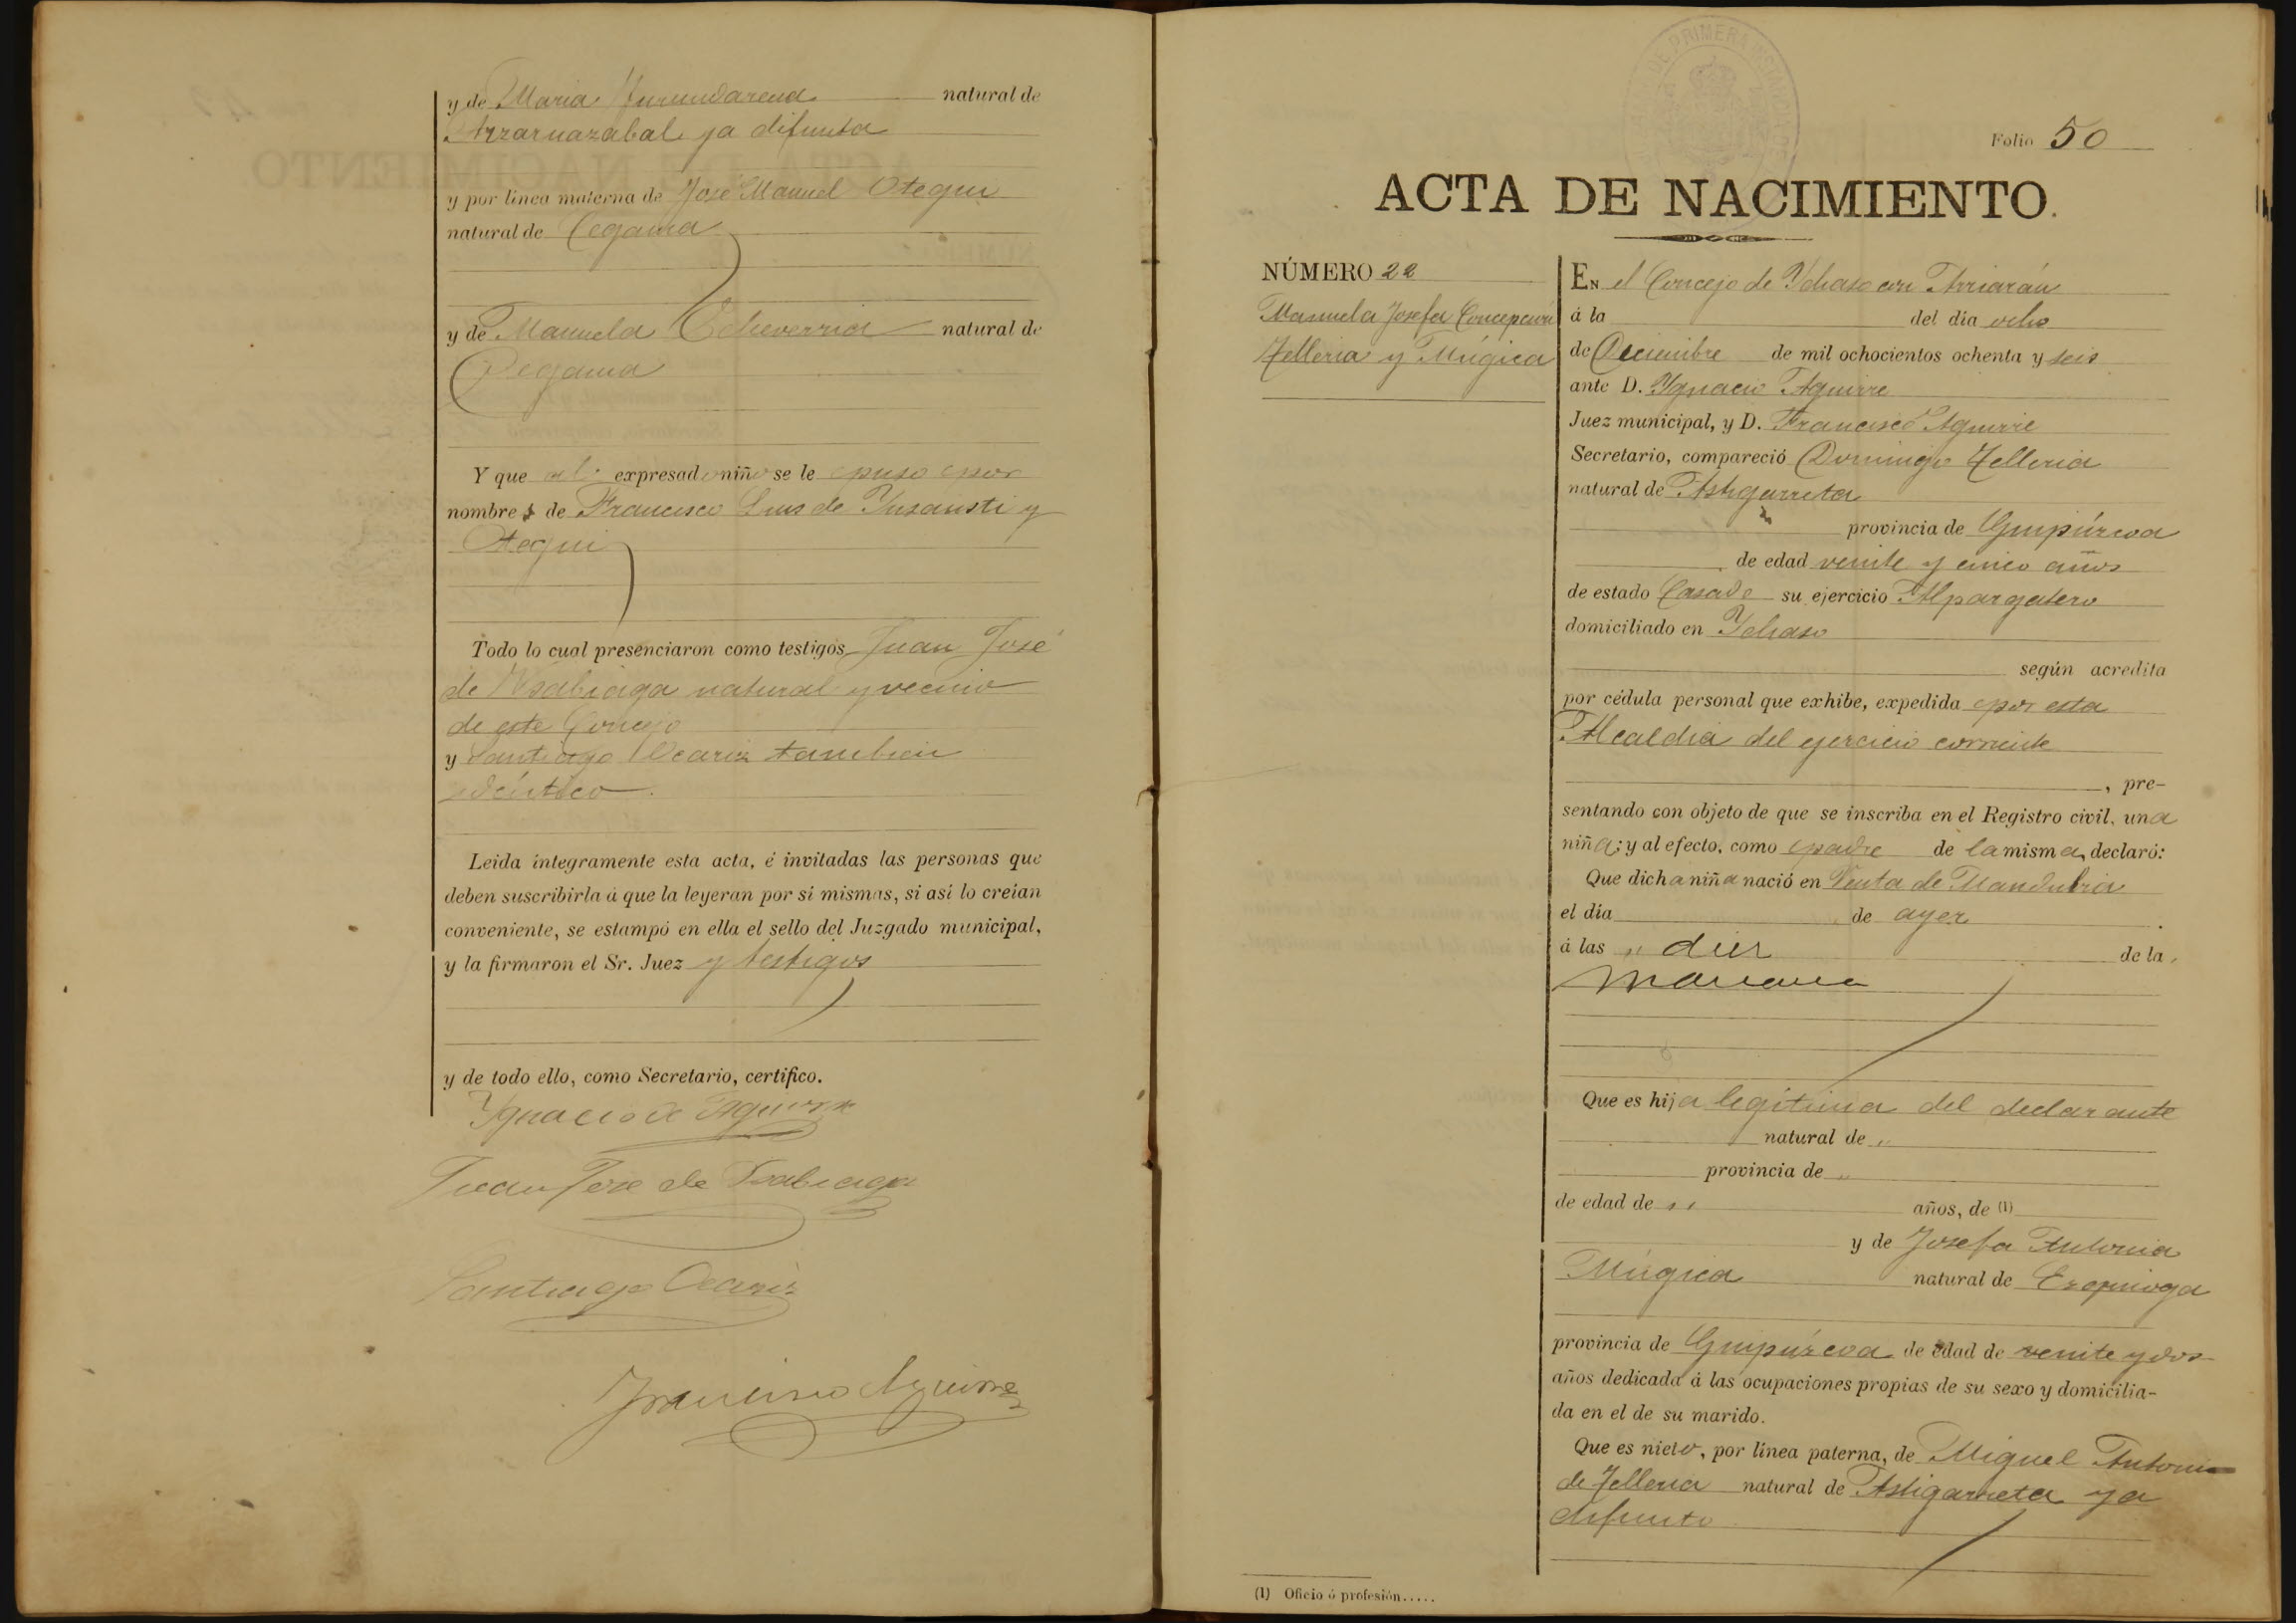 y de Maria Yurrundarena natural de
Arzarnazabal ya difunta
y por línea materna de José Manuel Otegui
natural de Cegama
y de Manuela Echeverria natural de
Cegama
Y que al expresado niño se le puso por
nombre de Francisco Luis de Insausti y
Otegui
Todo lo cual presenciaron como testigos Juan José
de Ysabiaga natural y vecino
de este Concejo
y Santiago Ocariz tambien
idéntico.
Leida íntegramente esta acta, é invitadas las personas que
deben suscribirla á que la leyeran por sí mismas, si así lo creían
conveniente, se estampó en ella el sello del Juzgado municipal,
y la firmaron el Sr. Juez y testigos
y de todo ello, como Secretario, certifico.
Ygnacio de Aguirre
Juan Jose de Ysabiaga
Santiago Ocariz
Francisco Aguirre
DE PRIMERA INSTANCIA DE
Folio 50
ACTA DE NACIMIENTO.
NÚMERO 22
Manuela Josefa Concepción
Telleria y Múgica
EN el Concejo de Ychaso con Arriarán
á la del día ocho
de Diciembre de mil ochocientos ochenta y seis
ante D. Ygnacio Aguirre
Juez municipal, y D. Francisco Aguirre
Secretario, compareció Domingo Telleria
natural de Astigarreta
provincia de Guipúzcoa
de edad veinte y cinco años
de estado Casado su ejercicio Alpargatero
domiciliado en Ychaso
según acredita
por cédula personal que exhibe, expedida por esta
Alcaldia del ejercicio corriente
, pre-
sentando con objeto de que se inscriba en el Registro civil, una
niña; y al efecto, como padre de la misma, declaró:
Que dicha niña nació en Venta de Mandubia
el día de ayer
á las " diez de la
manana
Que es hija legítima del declarante
natural de "
provincia de "
de edad de " años, de (1)
y de Josefa Antonia
Múgica natural de Ezquioga
provincia de Guipúzcoa de edad de veinte y dos
años dedicada á las ocupaciones propias de su sexo y domicilia-
da en el de su marido.
Que es nieto, por línea paterna, de Miguel Antonio
de Telleria natural de Astigarreta ya
difunto
(1) Oficio ó profesión.....